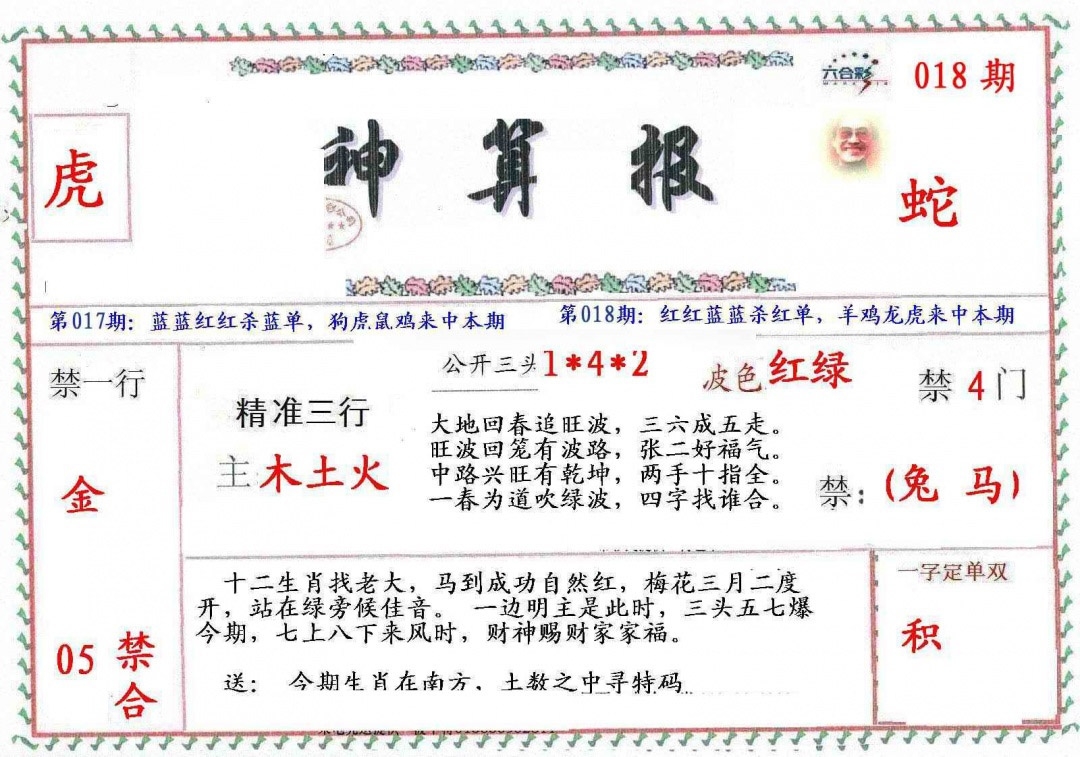 六合彩
018 期
虎
神算报
蛇
第017期：蓝蓝红红杀蓝单，狗虎鼠鸡来中本期
第018期：红红蓝蓝杀红单，羊鸡龙虎来中本期
禁一行
金
05 禁合
精准三行
主 木土火
公开三头 1*4*2
波色 红绿
大地回春追旺波，三六成五走。
旺波回笼有波路，张二好福气。
中路兴旺有乾坤，两手十指全。
一春为道吹绿波，四字找谁合。
禁 4 门
禁：(兔 马)
十二生肖找老大，马到成功自然红，梅花三月二度
开，站在绿旁候佳音。 一边明主是此时，三头五七爆
今期，七上八下来风时，财神赐财家家福。
送： 今期生肖在南方，土数之中寻特码
一字定单双
积